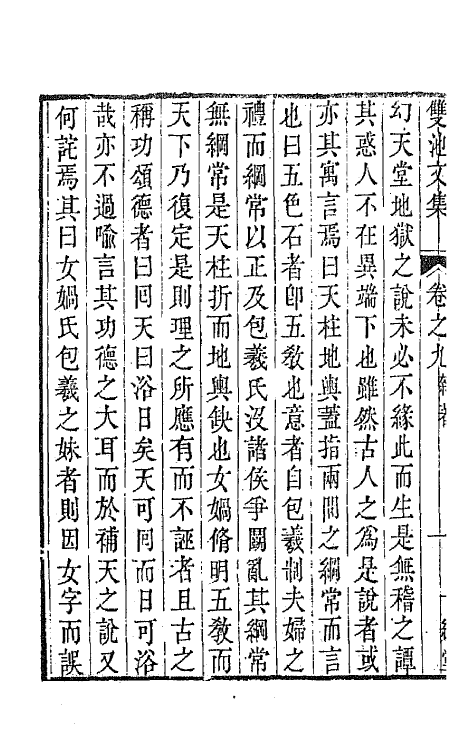 雙池文集
卷之九
幻天堂地獄之說未必不緣此而生是無稽之譚
其惑人不在異端下也雖然古人之爲是說者或
亦其寓言焉曰天柱地輿蓋指兩間之綱常而言
也曰五色石者卽五敎也意者自包羲制夫婦之
禮而綱常以正及包羲氏沒諸侯爭鬭亂其綱常
無綱常是天柱折而地輿鈌也女媧脩明五敎而
天下乃復定是則理之所應有而不誣者且古之
稱功頌德者曰囘天曰浴日矣天可囘而日可浴
哉亦不過喩言其功德之大耳而於補天之說又
何詫焉其曰女媧氏包羲之妹者則因女字而誤